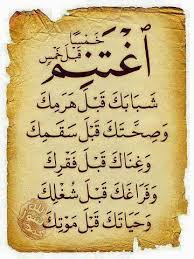 ٱغْتَنِمْ خَمْسًا قَبْلَ خَمْسٍ
شَبَابَكَ قَبْلَ هَرَمِكَ
وَصِحَّتَكَ قَبْلَ سَقَمِكَ
وَغِنَاكَ قَبْلَ فَقْرِكَ
وَفَرَاغَكَ قَبْلَ شُغْلِكَ
وَحَيَاتَكَ قَبْلَ مَوْتِكَ